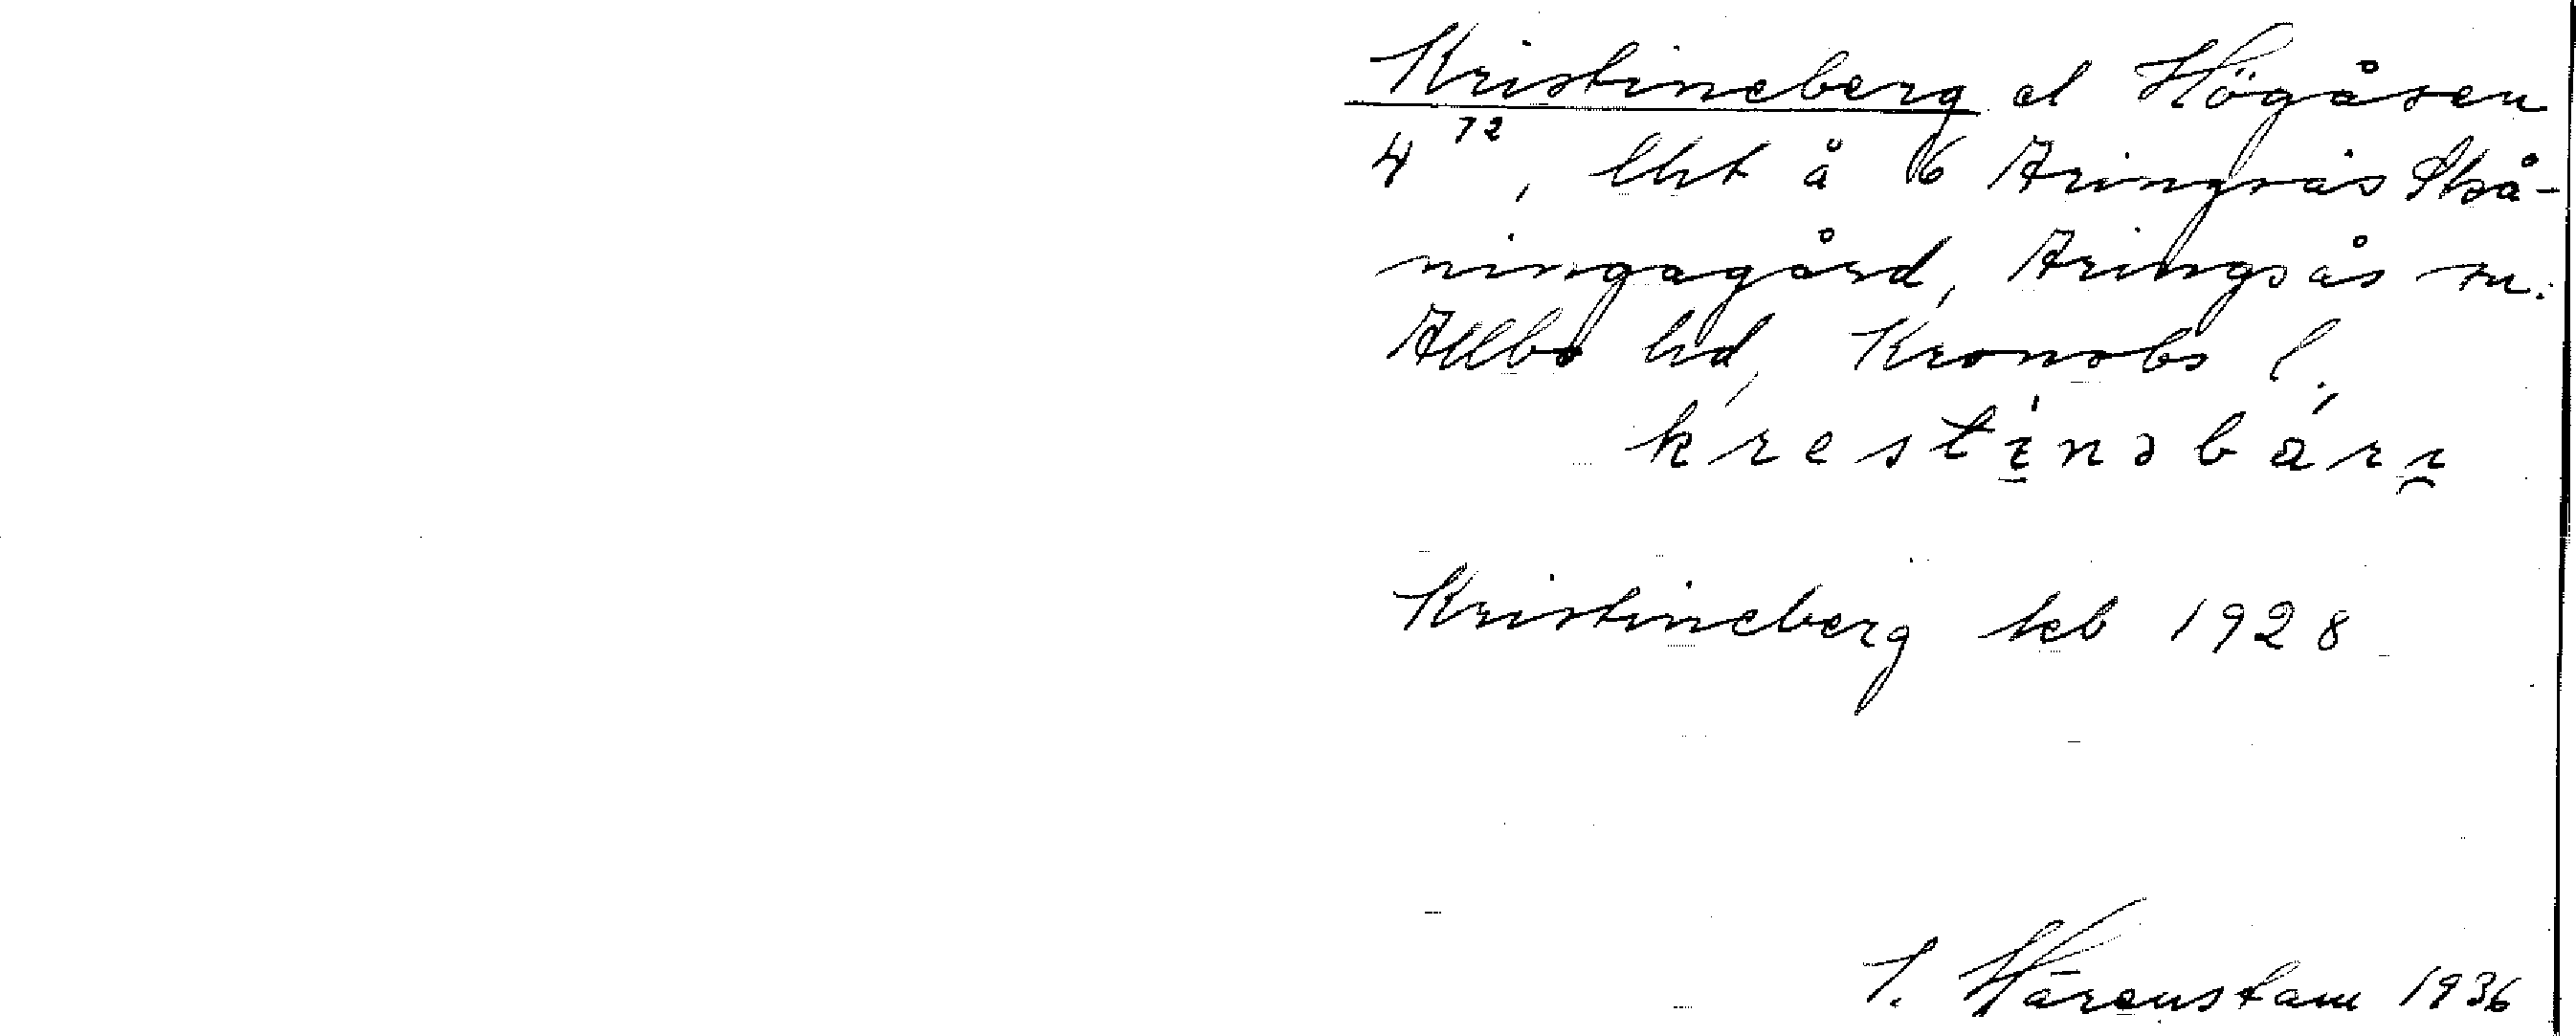 Kristineberg el Högåsen
4 72, lht å 6 Aringsås Skå-
ningagård, Aringsås sn.
Allbo hd, Kronobs l.,
krestinəbäri̯
Kristineberg keb 1928
I. Härenstam 1936